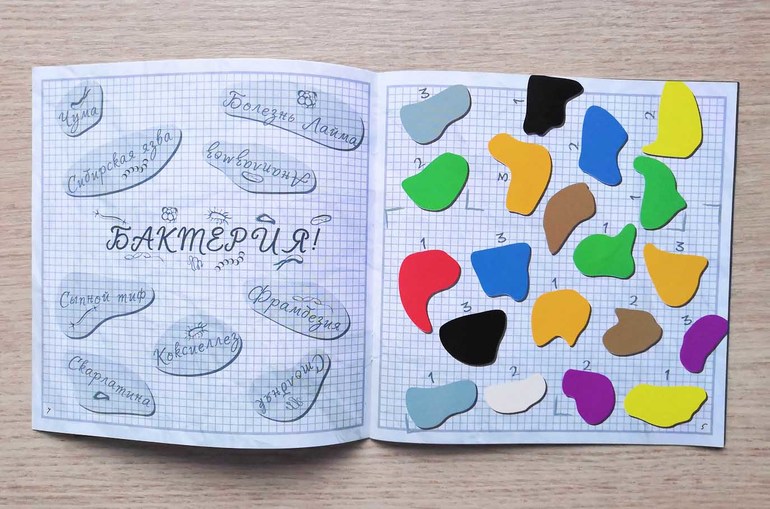 Чума
Болезнь Лайма
Сибирская язва
Анаплазмоз
БАКТЕРИЯ!
Сыпной тиф
Фрамбезия
Коксиеллез
Скарлатина
Столбняк
3
1
2
2
2
3
1
1
3
1
3
3
1
2
3
1
2
2
1
5